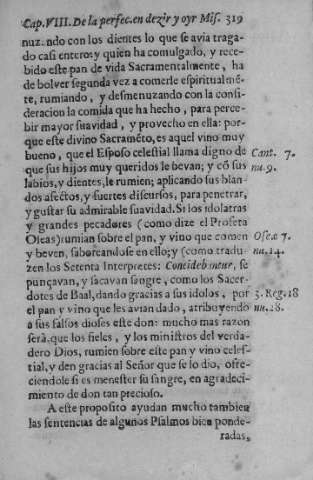 Cap. VIII. De la perfec. en dezir y oyr Mis. 319
nuzando con los dientes lo que se avia traga-
do casi entero: y quien ha comulgado, y rece-
bido este pan de vida Sacramentalmente, ha
de bolver segunda vez a comerle espiritualmẽ-
te, rumiando, y desmenuzando con la consi-
deracion la comida que ha hecho, para perce-
bir mayor suavidad, y provecho en ella: por-
que este divino Sacramẽto, es aquel vino muy
bueno, que el Esposo celestial llama digno de
que sus hijos muy queridos le bevan; y cõ sus
labios, y dientes, le rumien; aplicando sus blan-
dos afectos, y fuertes discursos, para penetrar,
y gustar su admirable suavidad. Si los idolatras
y grandes pecadores (como dize el Profeta
Oseas) rumian sobre el pan, y vino que comen
y beven, saboreandose en ello; y (como tradu-
zen los Setenta Interpretes: Concidebantur, se
punçavan, y sacavan sangre, como los Sacer-
dotes de Baal, dando gracias a sus idolos, por
el pan y vino que les avian dado, atribuyendo
a sus falsos dioses este don: mucho mas razon
será, que los fieles, y los ministros del verda-
dero Dios, rumien sobre este pan y vino celes-
tial, y den gracias al Señor que se lo dio, ofre-
ciendole si es menester su sangre, en agradeci-
miento de don tan precioso.
A este proposito ayudan mucho tambien
las sentencias de algunos Psalmos bien ponde-
radas,
Cant. 7.
nu. 9.
Oseæ 7.
nu. 14.
3. Reg. 18
nu. 28.